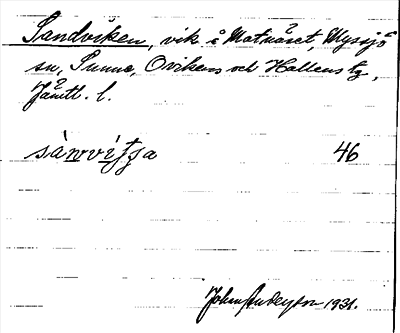 Sandviken, vik å Matnäset, Myssjö
sn, Sunne, Ovikens och Hallens tg,
Jämtl. l.
sànvìʃʃa 46
John Anderson 1931.